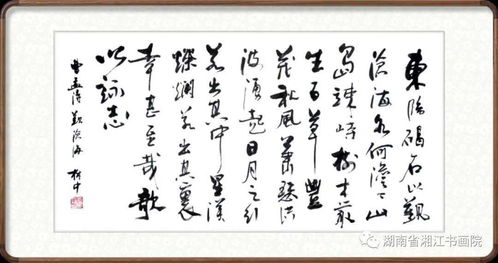 東臨碣石以觀
滄海水何澹々山
島竦峙樹木叢
生百草豐
茂秋風蕭瑟洪
波湧起日月之行
若出其中星漢
燦爛若出其裏
幸甚至哉歌
以詠志
曹孟德觀滄海
湖南省湘江书画院